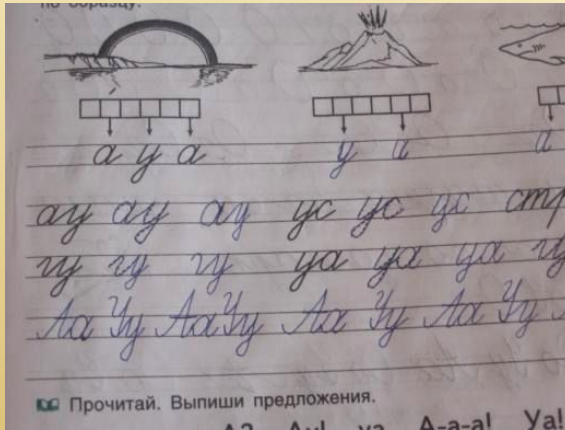 по образцу.
а у а у а а
ау ау ау ус ус ус стр
гу гу гу уа уа уа гу
Аа Уу Аа Уу Аа Уу Аа Уу
Прочитай. Выпиши предложения.
А? Ау! уа А-а-а! Уа!